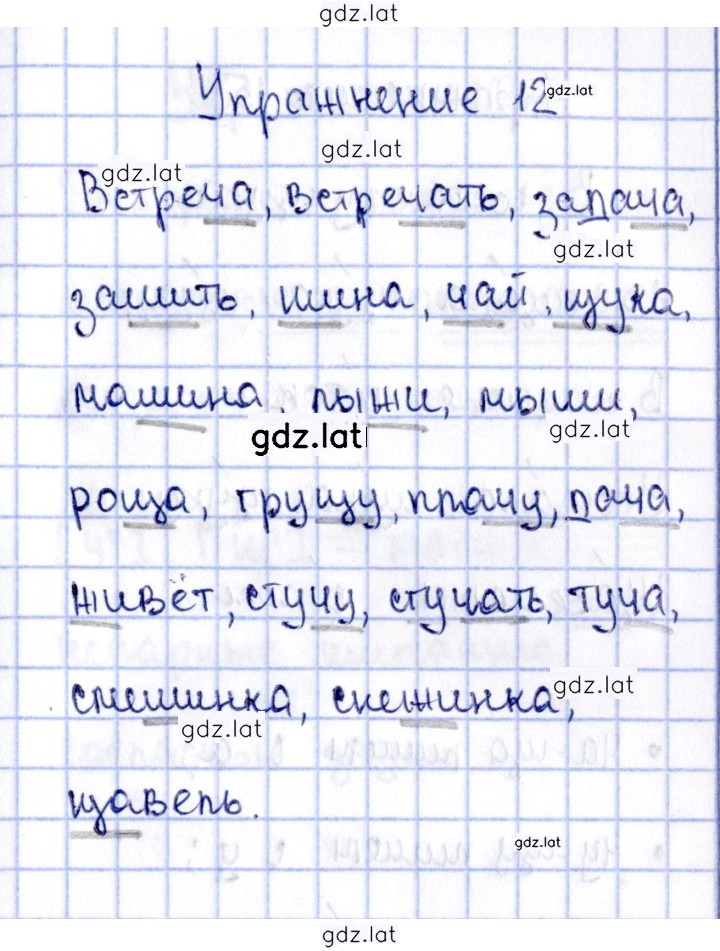 gdz.lat
Упражнение 12 gdz.lat
gdz.lat
gdz.lat
Встреча, встречать, задача,
gdz.lat
зашить, шина, чай, щука,
машина. лыжи, мыши,
gdz.lat gdz.lat
роща, грущу, плачу, дача,
живёт, стучу, стучать, туча,
смешинка, снежинка,
gdz.lat
gdz.lat
щавель.
gdz.lat
gdz.lat